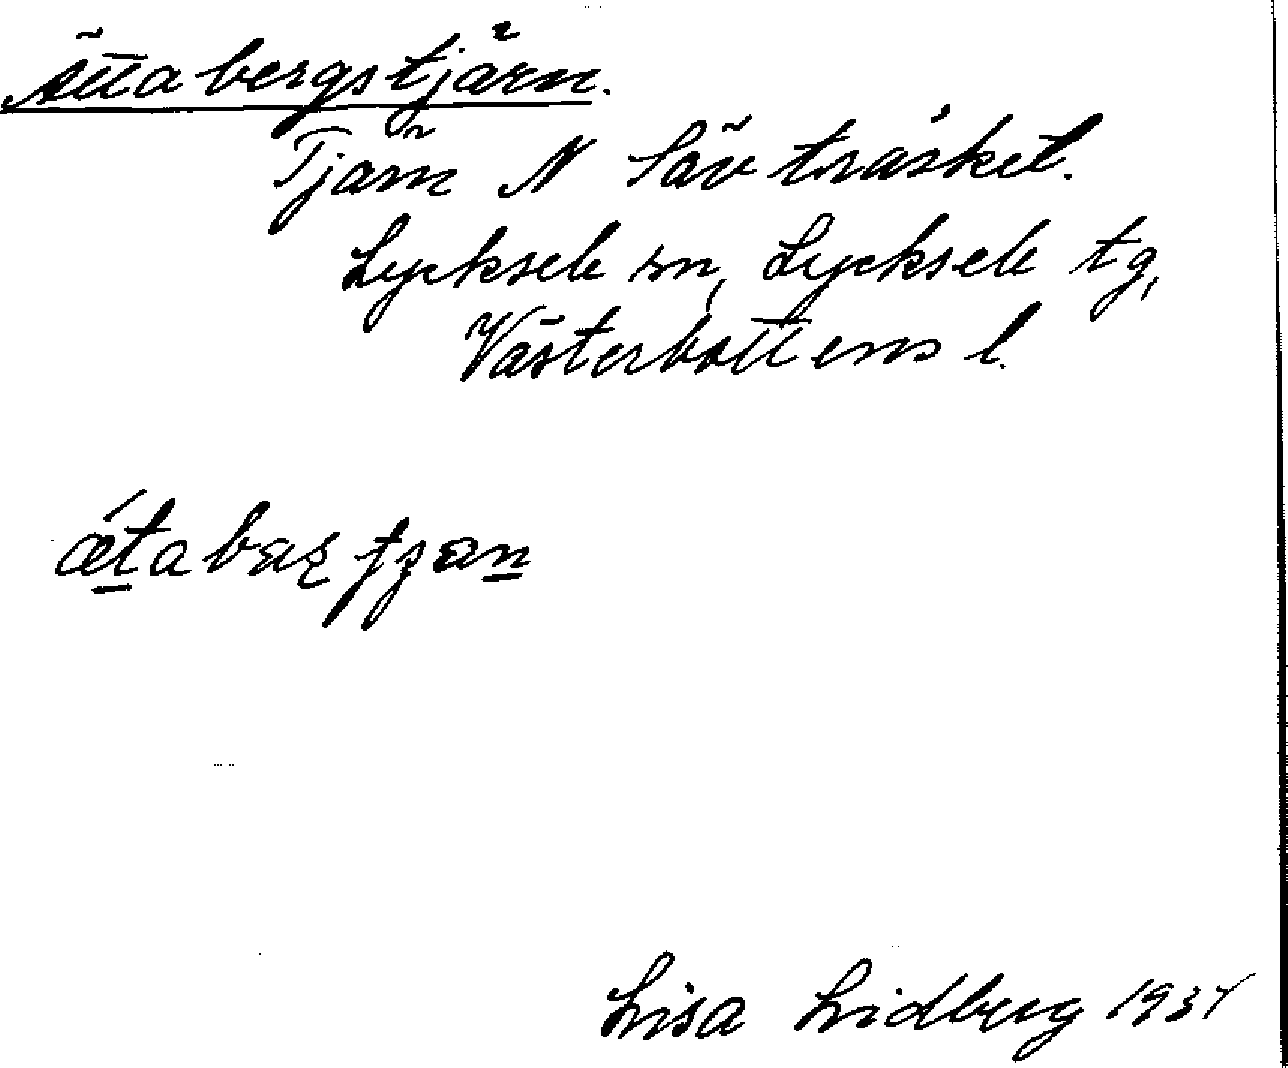 Ättabergstjärn.
Tjärn N Sävträsket.
Lycksele sn, Lycksele tg,
Västerbottens l.
Lisa Lidberg